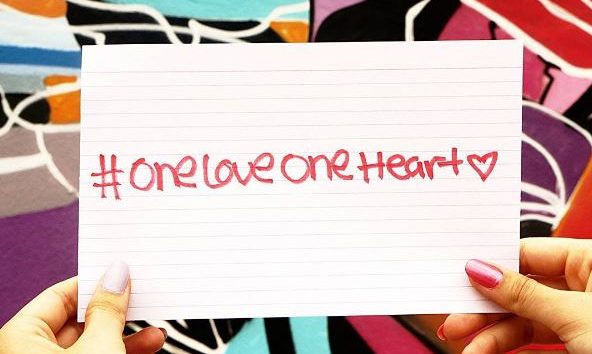 #oneLoveOneHeart♡